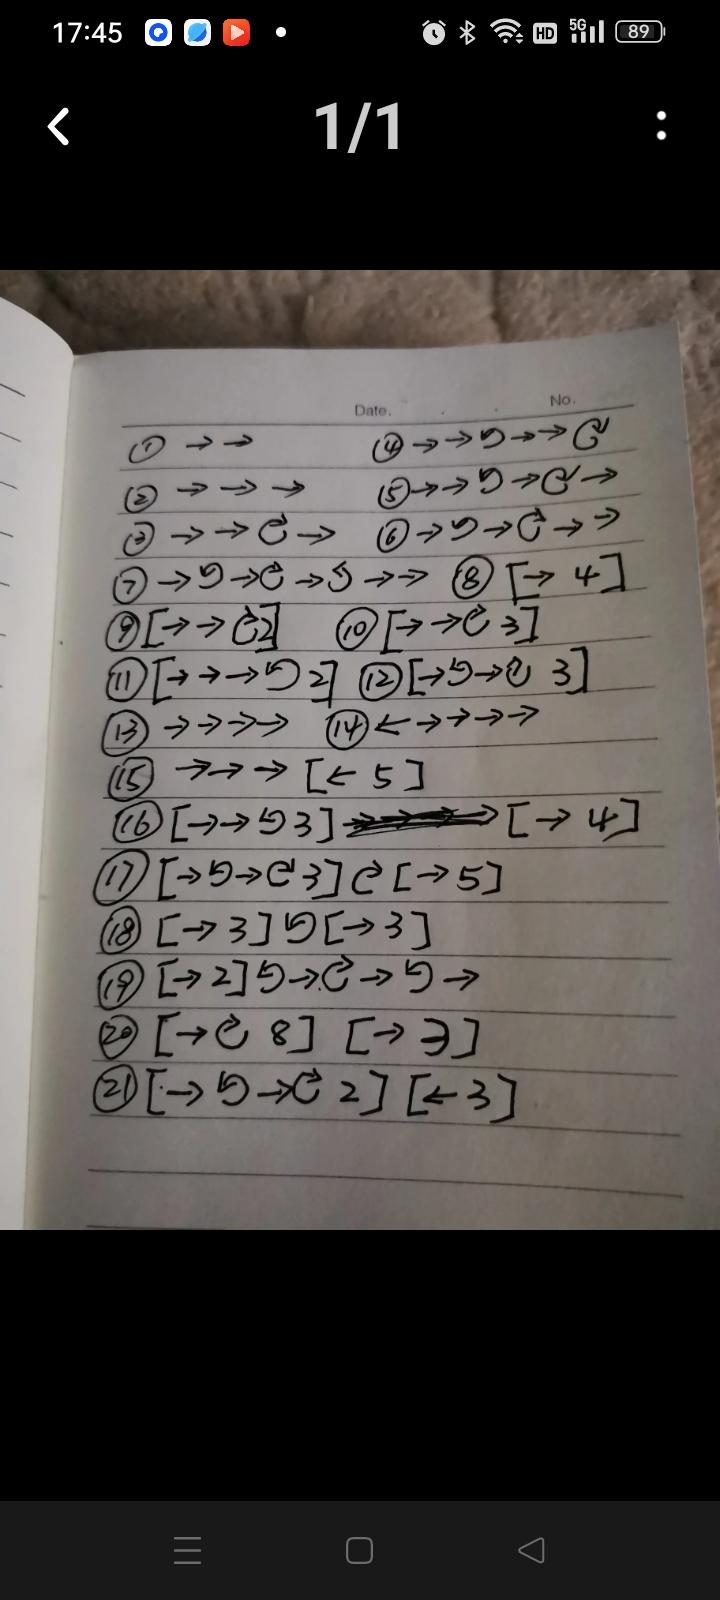 17:45 HD 5G 89
1/1
Date. No.
① → → ④ → → ↺ → → ↻
② → → → ⑤ → → ↺ → ↻ →
③ → → ↻ → ⑥ → ↺ → ↻ → →
⑦ → ↺ → ↻ → ↺ → → ⑧ [→ 4]
⑨ [→ → ↻ 2] ⑩ [→ → ↻ 3]
⑪ [→ → → ↺ 2] ⑫ [→ ↺ → ↻ 3]
⑬ → → → → ⑭ ← → → → →
⑮ → → → [← 5]
⑯ [→ → ↺ 3] [→ 4]
⑰ [→ ↺ → ↻ 3] ↻ [→ 5]
⑱ [→ 3] ↺ [→ 3]
⑲ [→ 2] ↺ → ↻ → ↺ →
⑳ [→ ↻ 8] [→ 3]
㉑ [→ ↺ → ↻ 2] [← 3]